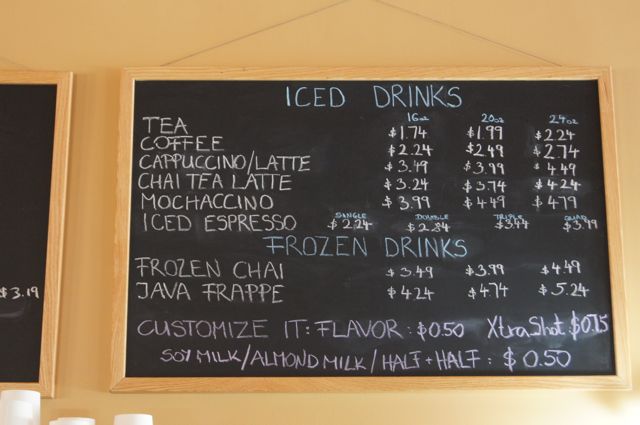 ICED DRINKS
16oz 20oz 24oz
TEA $1.74 $1.99 $2.24
COFFEE $2.24 $2.49 $2.74
CAPPUCCINO/LATTE $3.49 $3.99 $4.49
CHAI TEA LATTE $3.24 $3.74 $4.24
MOCHACCINO $3.99 $4.49 $4.79
SINGLE DOUBLE TRIPLE QUAD
ICED ESPRESSO $2.24 $2.84 $3.44 $3.99
FROZEN DRINKS
FROZEN CHAI $3.49 $3.99 $4.49
JAVA FRAPPE $4.24 $4.74 $5.24
$3.19
CUSTOMIZE IT: FLAVOR: $0.50 XtraShot $0.75
SOY MILK/ALMOND MILK/HALF+HALF: $0.50